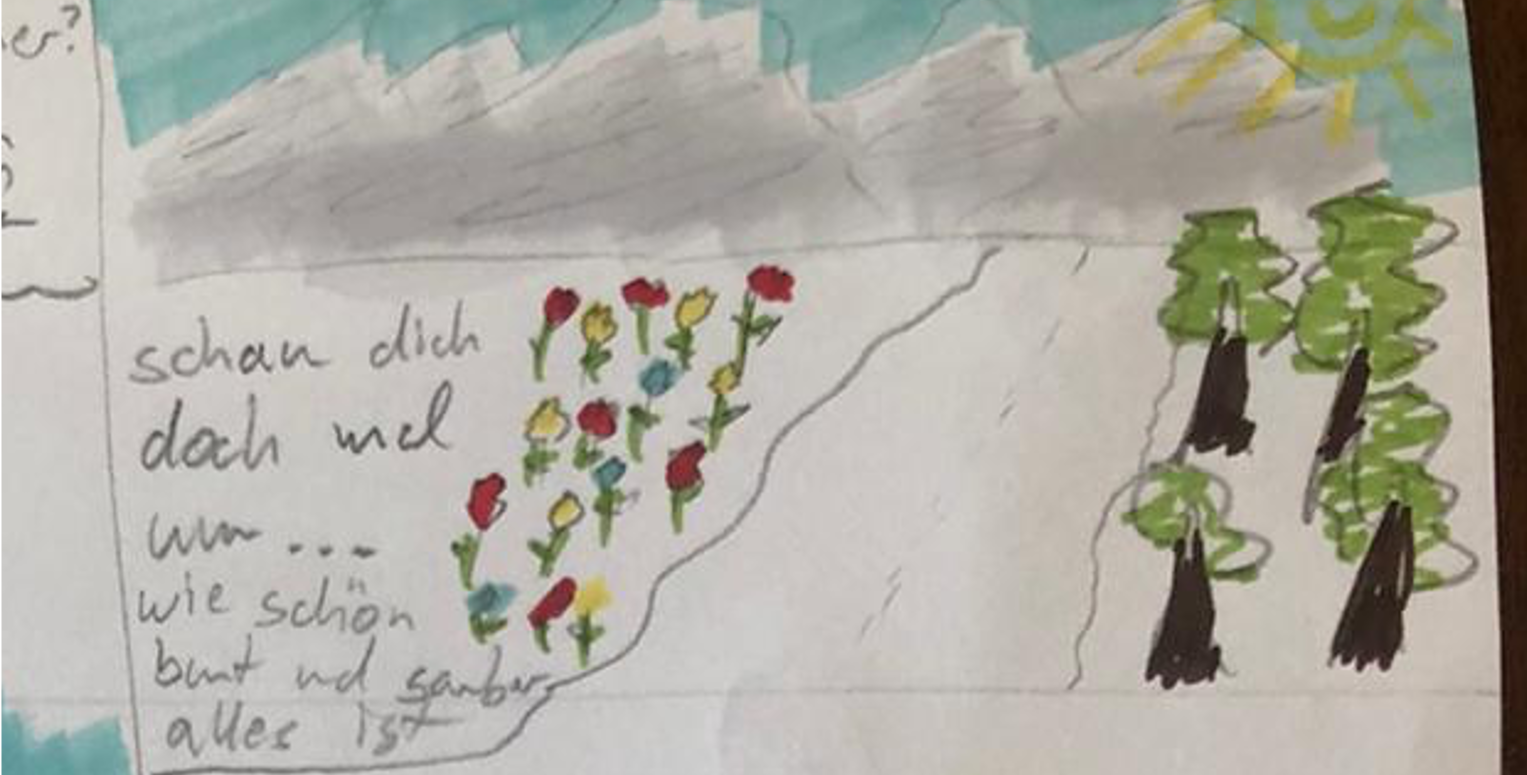 er?
schau dich
doch mal
um...
wie schön
bunt und sauber
alles ist